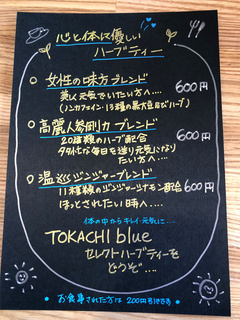 心と体に優しい
ハーブティー
○ 女性の味方ブレンド 600円
美しく元気でいたい方へ‥‥
(ノンカフェイン・13種の黒大豆などハーブ)
○ 高麗人参剛力ブレンド 600円
20種類のハーブ配合
タダイな毎日を送り元気になり
たい方へ‥‥
○ 温 ジンジャーブレンド 600円
11種類のジンジャーシナモン配合
ほっとされたい時へ‥‥
体の中からキレイ・元気に‥‥
TOKACHI blue
セレクトハーブティーを
どうぞ‥‥
● お食事された方は200円引きです ●